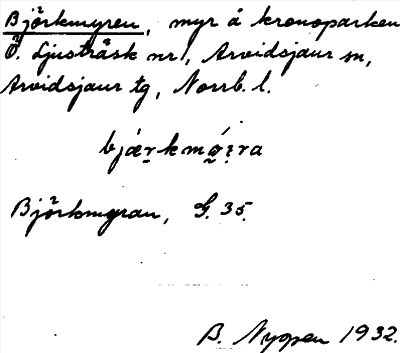 Björkmyren, myr å kronoparken
Ö. Ljusträsk nr 1, Arvidsjaur sn,
Arvidsjaur tg, Norrb. l.
bjæ̀r̥kmǿi̥ra
Björkmyran, G. 35.
B. Nygren 1932.